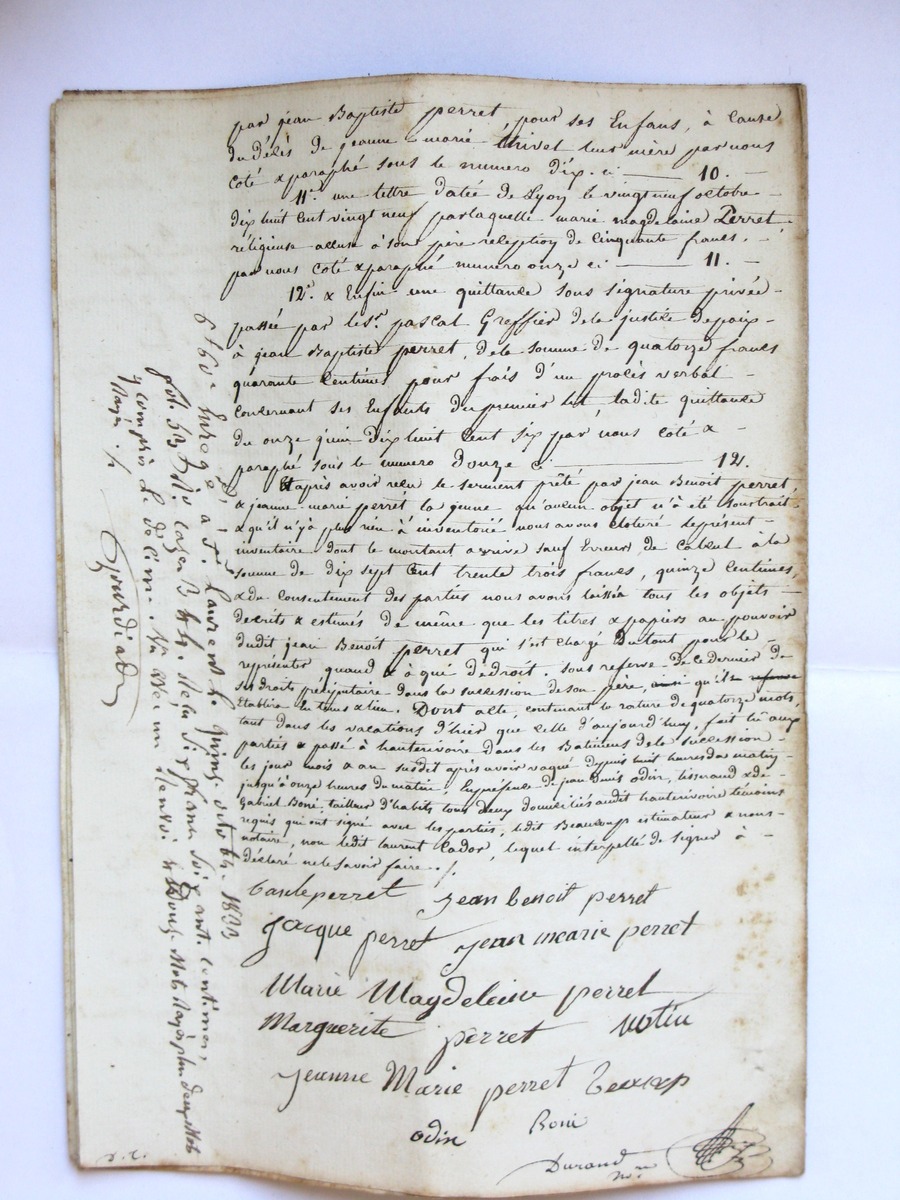 par jean Baptiste perret, pour ses Enfans, à Cause
du délès de jeanne-marie thivel leur mère par nous
Coté & paraphé sous le numero dix. ci — 10. —
11°. une lettre datée de Lyon le vingt neuf octobre -
dix huit Cent vingt neuf par laquelle marie magdelaine Perret -
réligieuse accuse à son père réception de Cinquante francs. -
par nous Coté & paraphé numero onze ci — 11. —
12°. & Enfin une quittance sous signature privée -
passée par le Sr. pascal Greffier de la justice de paix -
à jean Baptiste perret, de la somme de quatorze francs
quarante Centimes pour frais d'un procès verbal -
Concernant ses Enfants du premier lit, ladite quittance
du onze juin Dix huit Cent six par nous Coté & -
paraphé sous le numero Douze ci — 12.
Et après avoir reçu le serment prêté par jean Benoit perret,
& jeanne-marie perret la jeune qu'aucun objet n'a été soustrait
& qu'il n'y a plus rien à inventorié nous avons Cloturé le présent -
inventaire dont le montant arrive sauf Erreur de Calcul à la
somme de dix sept Cent trente trois francs, quinze Centimes,
& du Consentement des parties nous avons laissé tous les objets -
décrits & estimés de même que les titres & papiers au pouvoir
dudit jean Benoit perret qui s'est Chargé du tout pour le -
représenter quand & à qui de droit. sous reserve de Ce dernier de
ses droits dans la succession de son père, qu'il
Etablira en tems & lieu. Dont acte, Contenant la rature de quatorze mots,
tant dans les vacations d'hier que Celle d'aujourd'huy, fait lu aux
parties & passé à hauterivoire dans les Batimens de la succession -
les jour mois & an susdit après avoir vaqué depuis huit heures du matin -
jusqu'à onze heures du matin, En présence de jean denis odin, tisserand & de -
gabriel Boni, tailleur d'habits tous deux domiciliés audit hauterivoire témoins
requis qui ont signé avec les parties, ledit Beaucoup estimateur & nous -
notaire, non ledit laurent Cador, lequel interpellé de signer à -
déclaré ne le savoir faire. /.
perret jean benoit perret
jacque perret jean mearie perret
Marie Magdeleine perret
Marguerite perret
jeanne Marie perret
odin Boni
Durand
Nre
Enregé. à St. Laurent le quinze octobre 1833
fol. Case Reçu six francs soixante centimes,
y compris le décime.